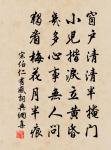 窗户清清半掩门
小儿楷泪立黄昏
莫多心事无人问
独看梅花月半痕
宋伯仁书感词典网集